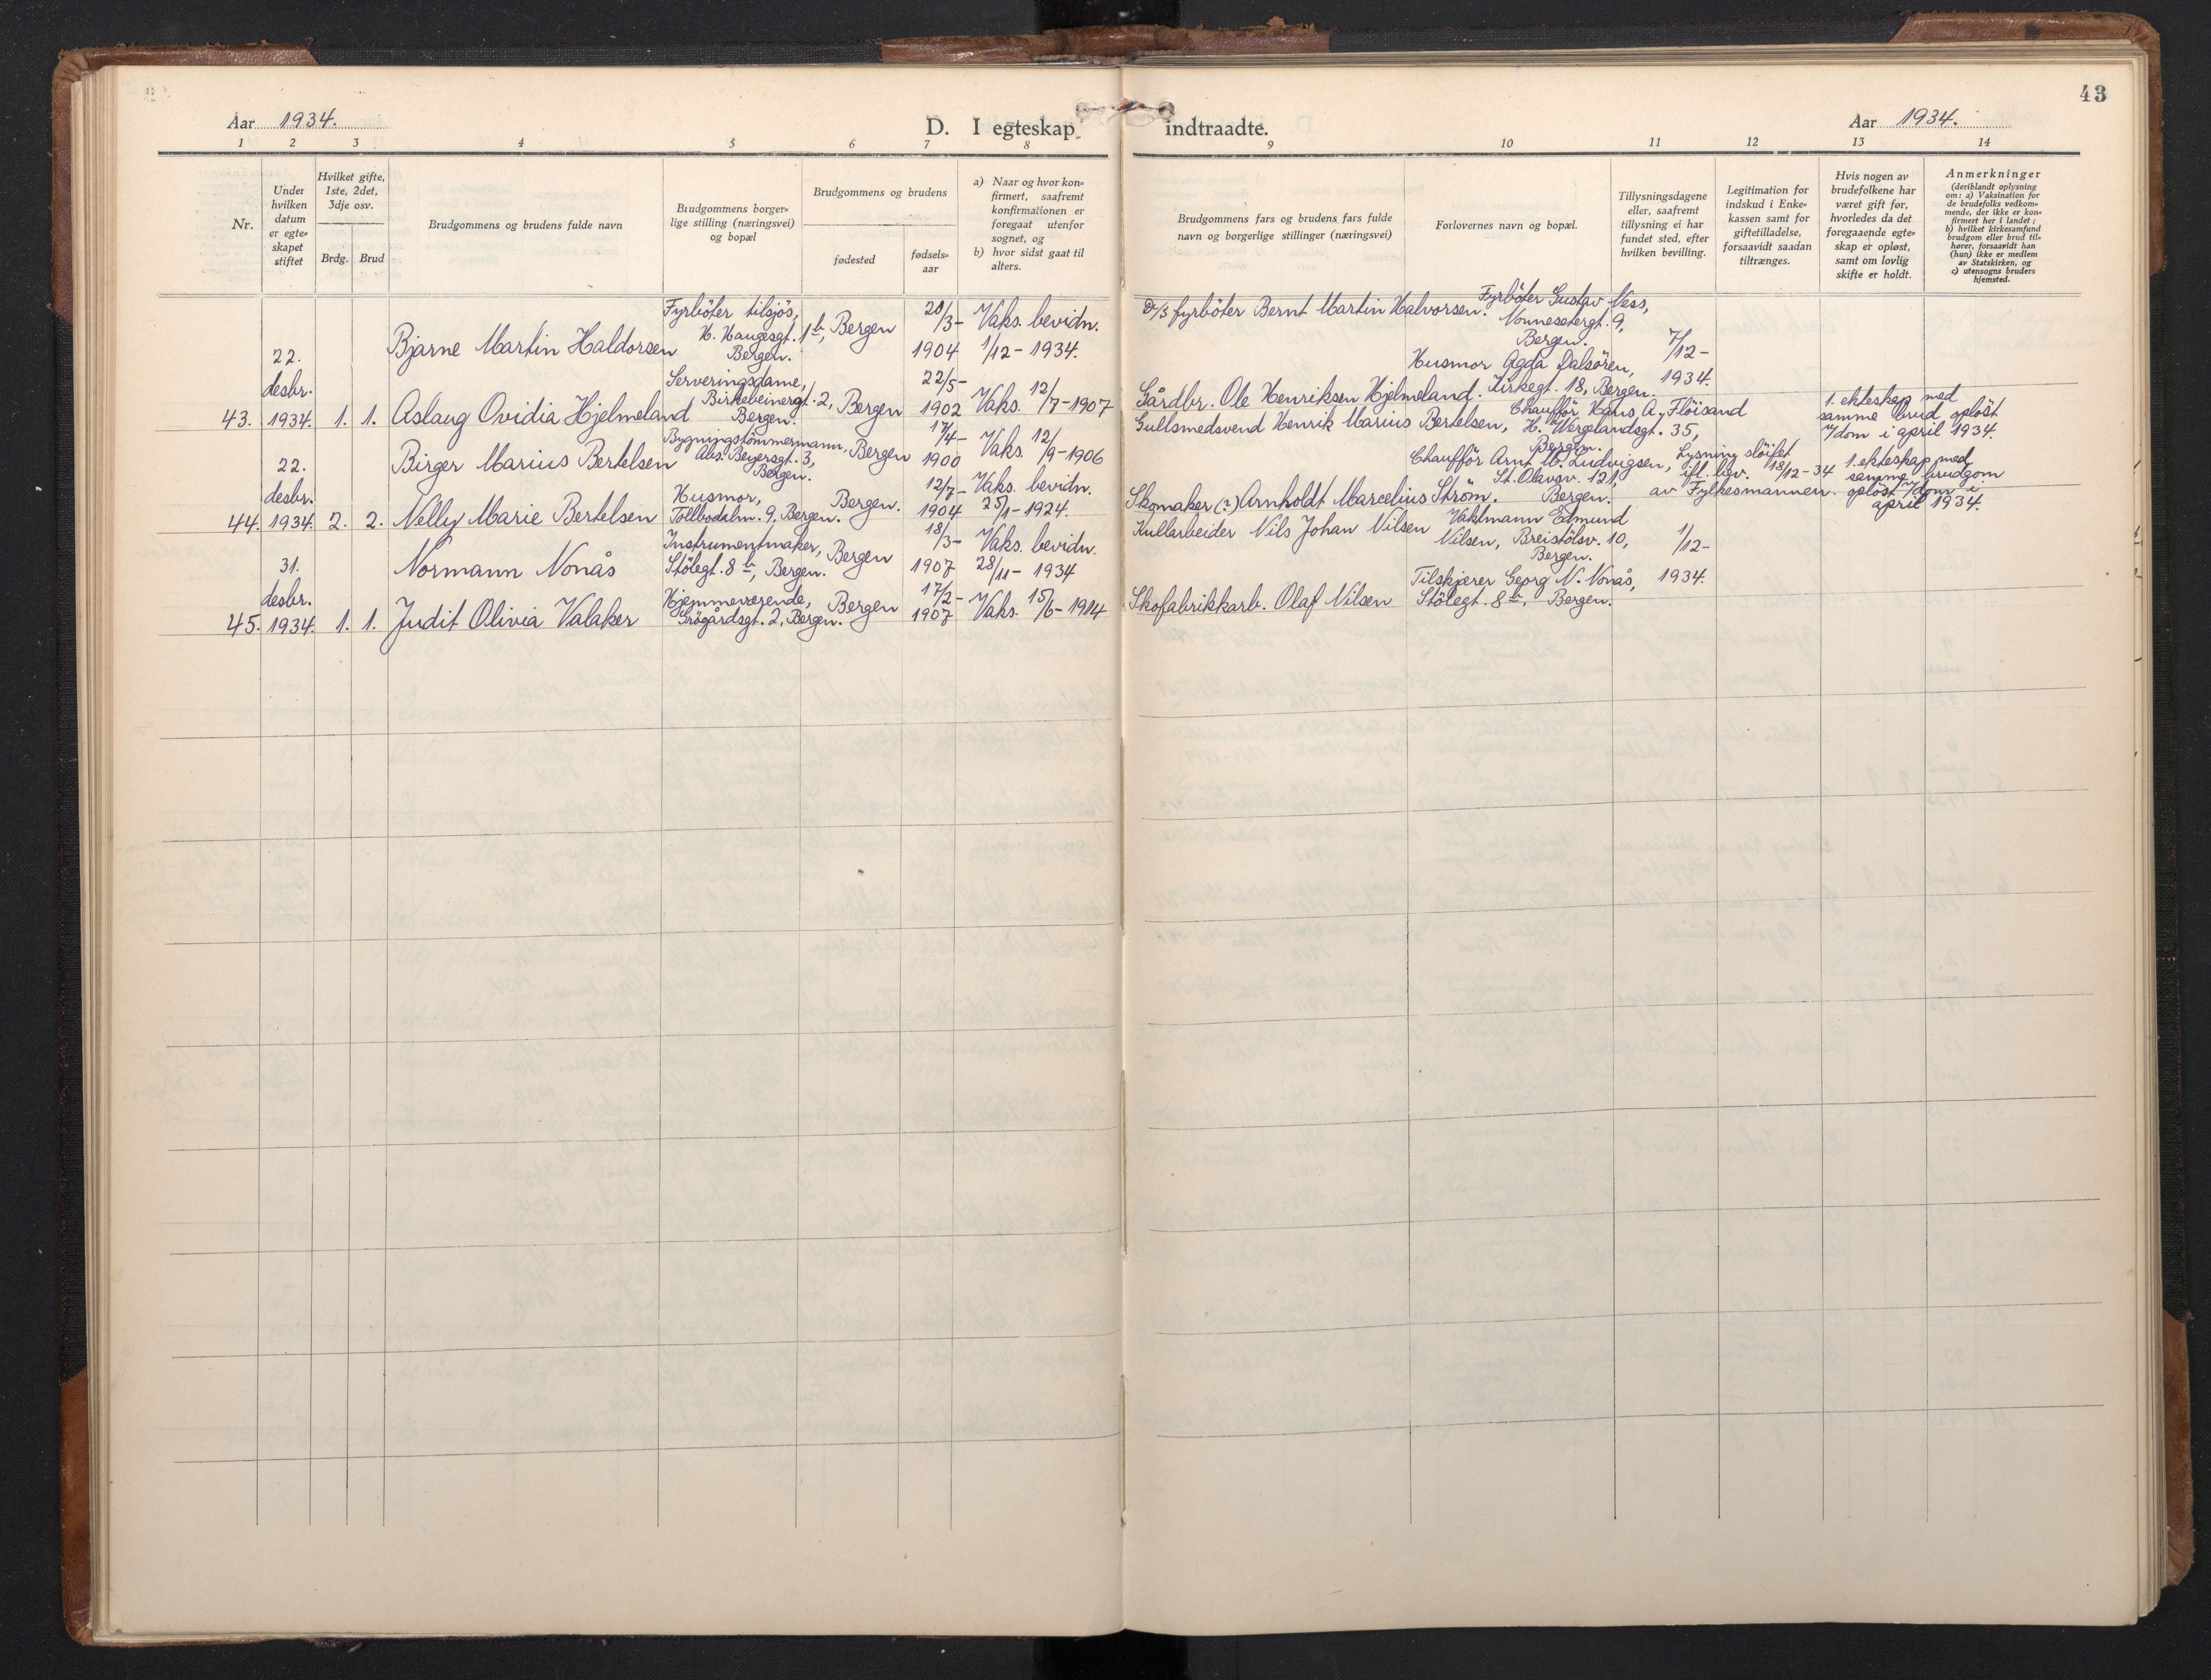 43
Aar 1934.
D. I egteskap indtraadte.
Aar 1934.
1 2 3 4 5 6 7 8 9 10 11 12 13 14
Nr.
Under
hvilken
datum
er egte-
skapet
stiftet
Hvilket gifte,
1ste, 2det,
3dje osv.
Brdg. Brud
Brudgommens og brudens fulde navn
Brudgommens borger-
lige stilling (næringsvei)
og bopæl
Brudgommens og brudens
fødested
fødsels-
aar
a) Naar og hvor kon-
firmert, saafremt
konfirmationen er
foregaat utenfor
sognet, og
b) hvor sidst gaat til
alters.
Brudgommens fars og brudens fars fulde
navn og borgerlige stillinger (næringsvei)
Forlovernes navn og bopæl.
Tillysningsdagene
eller, saafremt
tillysning ei har
fundet sted, efter
hvilken bevilling.
Legitimation for
indskud i Enke-
kassen samt for
giftetilladelse,
forsaavidt saadan
tiltrænges.
Hvis nogen av
brudefolkene har
været gift før,
hvorledes da det
foregaaende egte-
skap er opløst,
samt om lovlig
skifte er holdt.
Anmerkninger
(deriblandt oplysning
om: a) Vaksination for
de brudefolks vedkom-
mende, der ikke er kon-
firmert her i landet;
b) hvilket kirkesamfund
brudgom eller brud til-
hører, forsaavidt han
(hun) ikke er medlem
av Statskirken, og
c) utensogns bruders
hjemsted.
43.
22.
desbr.
1934.
1. 1.
Bjarne Martin Haldorsen
Fyrböter tilsjös,
H. Haugesgt. 1b,
Bergen.
Bergen
20/3-
1904
Vaks. bevidn.
1/12-1934.
fyrböter Bernt Martin Halvorsen.
Fyrböter Gustav Ness,
Nonnesetergt. 9,
Bergen.
7/12-
1934.
Aslaug Ovidia Hjelmeland
Serveringsdame,
Birkebeinergt. 2,
Bergen.
Bergen
22/5-
1902
Vaks. 12/7-1907
Gårdbr. Ole Henriksen Hjelmeland.
Husmor Agda Dalsören,
Kirkegt. 18, Bergen.
44.
22.
desbr.
1934.
2. 2.
Birger Marius Bertelsen
Bygningstömmermann,
Abs. Beyersgt. 3,
Bergen.
Bergen
17/4-
1900
Vaks. 12/9-1906
Gullsmedsvend Henrik Marius Bertelsen,
Chaufför Hans A. Flöisand
H. Wergelandsgt. 35,
Bergen.
Lysning slöifet
ifl. bev. 18/12-34
av Fylkesmannen.
1. ekteskap med
samme brud oplöst
v/dom i april 1934.
Nelly Marie Bertelsen
Husmor,
Tollbodalm. 9, Bergen.
Bergen.
12/7-
1904
Vaks. bevidn.
25/1-1924.
Skomaker (?) Arnholdt Marcelius Ström.
Chaufför Arnt M. Ludvigsen,
St. Olavsv. 121,
Bergen.
1. ekteskap med
samme brudgom
oplöst v/dom i
april 1934.
45.
31.
desbr.
1934.
1. 1.
Normann Nonås
Instrumentmaker,
Stölegt. 8b, Bergen.
Bergen
18/3-
1907
Vaks. bevidn.
28/11-1934
Kullarbeider Nils Johan Nilsen
Vaktmann Edmund
Nilsen, Breistölsv. 10,
Bergen.
1/12-
1934.
Judit Olivia Valaker
Hjemmeværende,
Grögårdsgt. 2, Bergen.
Bergen
17/2-
1907
Vaks. 15/6-1914
Skofabrikkarb. Olaf Nilsen
Tilskjærer Georg N. Nonås,
Stölegt. 8b, Bergen.